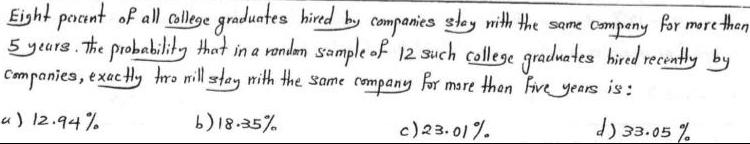 Eight percent of all college graduates hired by companies stay with the same company for more than
5 years. The probability that in a random sample of 12 such college graduates hired recently by
Companies, exactly two will stay with the same company for more than five years is:
a) 12.94% b) 18.35% c) 23.01%. d) 33.05 %